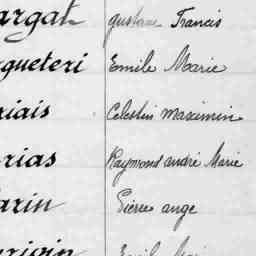 argat gustave Francis
gueteri Emile Marie
riais Celestin maximin
rias Raymond andré Marie
arin Pierre ange
Emile